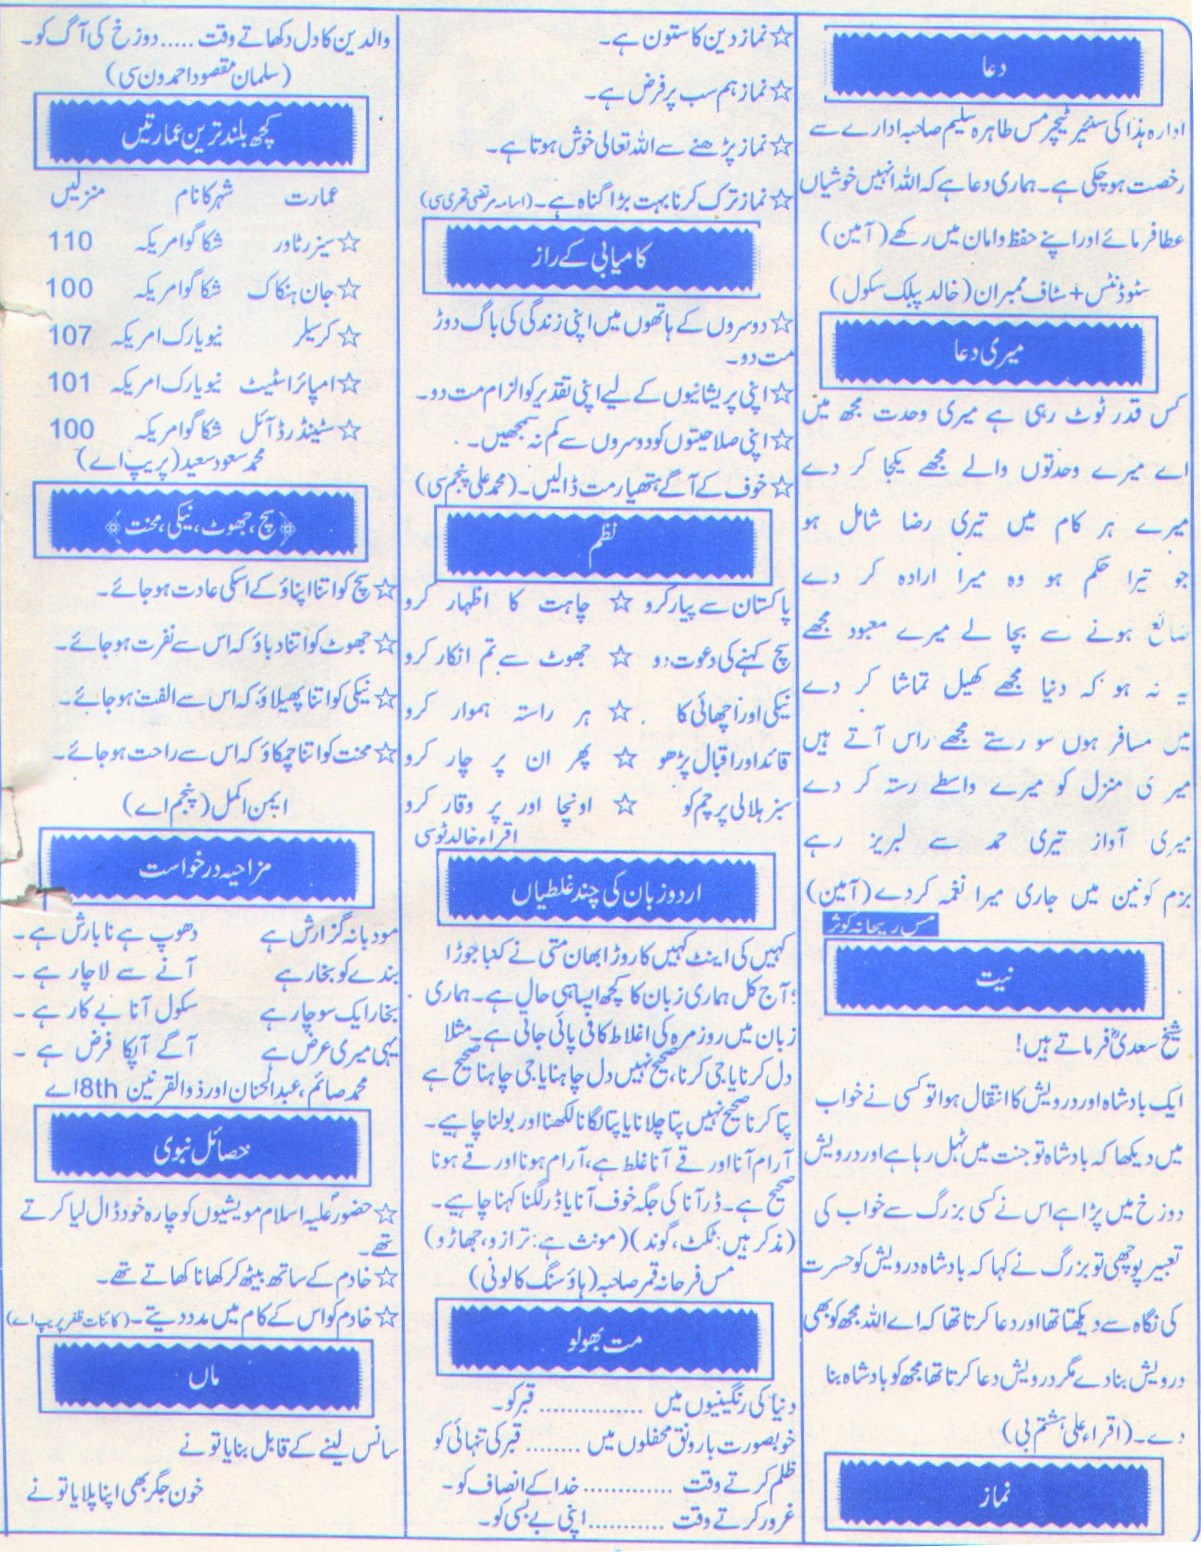 دعا
ادارہ ہذا کی سنئیر ٹیچر مس طاہرہ سلیم صاحبہ ادارے سے
رخصت ہو چکی ہے۔ ہماری دعا ہے کہ اللہ انہیں خوشیاں
عطا فرمائے اور اپنے حفظ و امان میں رکھے (آمین)
سٹوڈنٹس + سٹاف ممبران (خالد پبلک سکول)
میری دعا
کس قدر ٹوٹ رہی ہے میری وحدت مجھ میں
اے میرے وحدتوں والے مجھے یکجا کر دے
میرے ہر کام میں تیری رضا شامل ہو
جو تیرا حکم ہو وہ میرا ارادہ کر دے
ضائع ہونے سے بچا لے میرے معبود مجھے
یہ نہ ہو کہ دنیا مجھے کھیل تماشا کر دے
میں مسافر ہوں سو رستے مجھے راس آتے ہیں
میری منزل کو میرے واسطے رستہ کر دے
میری آواز تیری حمد سے لبریز رہے
بزم کونین میں جاری میرا نغمہ کر دے (آمین)
مس ریحانہ کوثر
نیت
شیخ سعدیؒ فرماتے ہیں!
ایک بادشاہ اور درویش کا انتقال ہوا تو کسی نے خواب
میں دیکھا کہ بادشاہ تو جنت میں ٹہل رہا ہے اور درویش
دوزخ میں پڑا ہے اس نے کسی بزرگ سے خواب کی
تعبیر پوچھی تو بزرگ نے کہا کہ بادشاہ درویش کو حسرت
کی نگاہ سے دیکھتا تھا اور دعا کرتا تھا کہ اے اللہ مجھ کو بھی
درویش بنا دے مگر درویش دعا کرتا تھا مجھ کو بادشاہ بنا
دے۔ (اقراء علی ہشتم بی)
نماز
☆ نماز دین کا ستون ہے۔
☆ نماز ہم سب پر فرض ہے۔
☆ نماز پڑھنے سے اللہ تعالی خوش ہوتا ہے۔
☆ نماز ترک کرنا بہت بڑا گناہ ہے۔ (اسامہ مرتضی تھری سی)
کامیابی کے راز
☆ دوسروں کے ہاتھوں میں اپنی زندگی کی باگ دوڑ
مت دو۔
☆ اپنی پریشانیوں کے لیے اپنی تقدیر کو الزام مت دو۔
☆ اپنی صلاحیتوں کو دوسروں سے کم نہ سمجھیں۔
☆ خوف کے آگے ہتھیار مت ڈالیں۔ (محمد علی پنجم سی)
نظم
پاکستان سے پیار کرو ☆ چاہت کا اظہار کرو
سچ کہنے کی دعوت دو ☆ جھوٹ سے تم انکار کرو
نیکی اور اچھائی کا ☆ ہر راستہ ہموار کرو
قائد اور اقبال پڑھو ☆ پھر ان پر چار کرو
سبز ہلالی پرچم کو ☆ اونچا اور پر وقار کرو
اقراء خالد ٹو سی
اردو زبان کی چند غلطیاں
کہیں کی اینٹ کہیں کا روڑا بھان متی نے کنبا جوڑا
؛ آج کل ہماری زبان کا کچھ ایسا ہی حال ہے۔ ہماری
زبان میں روز مرہ کی اغلاط کافی پائی جاتی ہے۔ مثلا
دل کرنا یا جی کرنا، صحیح نہیں دل چاہنا یا جی چاہنا صحیح ہے
پتا کرنا صحیح نہیں پتا چلانا یا پتا لگانا لکھنا اور بولنا چاہیے۔
آرام آنا اور قے آنا غلط ہے، آرام ہونا اور قے ہونا
صحیح ہے۔ ڈر آنا کی جگہ خوف آنا یا ڈر لگنا کہنا چاہیے۔
(مذکر ہیں: ٹکٹ، گوند) (مونث ہے: ترازو، جھاڑو)
مس فرحانہ قمر صاحبہ (ہاؤسنگ کالونی)
مت بھولو
دنیا کی رنگینیوں میں ............... قبر کو۔
خوبصورت بارونق محفلوں میں ........ قبر کی تنہائی کو
ظلم کرتے وقت ............. خدا کے انصاف کو۔
غرور کرتے وقت ........... اپنی بے بسی کو۔
والدین کا دل دکھاتے وقت ..... دوزخ کی آگ کو۔
(سلمان مقصود احمد ون سی)
کچھ بلند ترین عمارتیں
عمارت شہر کا نام منزلیں
☆ سیئرز ٹاور شکاگو امریکہ 110
☆ جان ہنکاک شکاگو امریکہ 100
☆ کریلر نیویارک امریکہ 107
☆ امپائر اسٹیٹ نیویارک امریکہ 101
☆ سٹینڈرڈ آئل شکاگو امریکہ 100
محمد سعود سعید (پریپ اے)
﴿سچ، جھوٹ، نیکی، محنت﴾
☆ سچ کو اتنا اپناؤ کے اسکی عادت ہو جائے۔
☆ جھوٹ کو اتنا دباؤ کہ اس سے نفرت ہو جائے۔
☆ نیکی کو اتنا پھیلاؤ کہ اس سے الفت ہو جائے۔
☆ محنت کو اتنا چمکاؤ کہ اس سے راحت ہو جائے۔
ایمن اکمل (پنجم اے)
مزاحیہ درخواست
مودبانہ گزارش ہے دھوپ ہے نا بارش ہے۔
بندے کو بخار ہے آنے سے لاچار ہے۔
بخار ایک سو چار ہے سکول آنا بے کار ہے۔
یہی میری عرض ہے آگے آپکا فرض ہے۔
محمد صائم، عبدالحنان اور ذوالقرنین 8th اے
خصائل نبوی
☆ حضور علیہ اسلام مویشیوں کو چارہ خود ڈال لیا کرتے
تھے۔
☆ خادم کے ساتھ بیٹھ کر کھانا کھاتے تھے۔
☆ خادم کو اس کے کام میں مدد دیتے۔ (کائنات ظفر پریپ اے)
ماں
سانس لینے کے قابل بنایا تو نے
خون جگر بھی اپنا پلایا تو نے